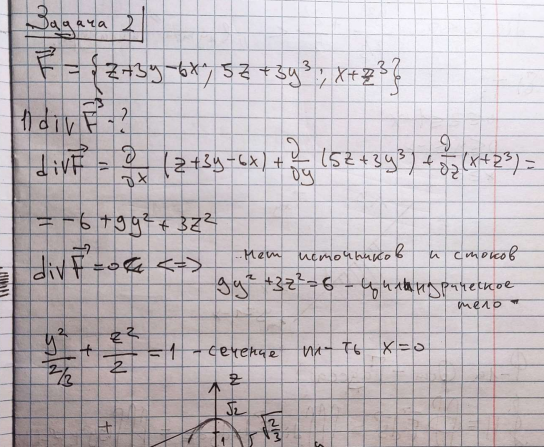 Задача 2
F⃗ = {z+3y-6x; 5z+3y³; x+z³}
1) div F⃗ - ?
div F⃗ = ∂/∂x (z+3y-6x) + ∂/∂y (5z+3y³) + ∂/∂z (x+z³) =
= -6 + 9y² + 3z²
div F⃗ = 0 <=> нет источников и стоков
9y² + 3z² = 6 - цилиндрическое
тело
y²/2/3 + z²/2 = 1 - сечение пл-ть x=0
z
√2
√2/3
+
1